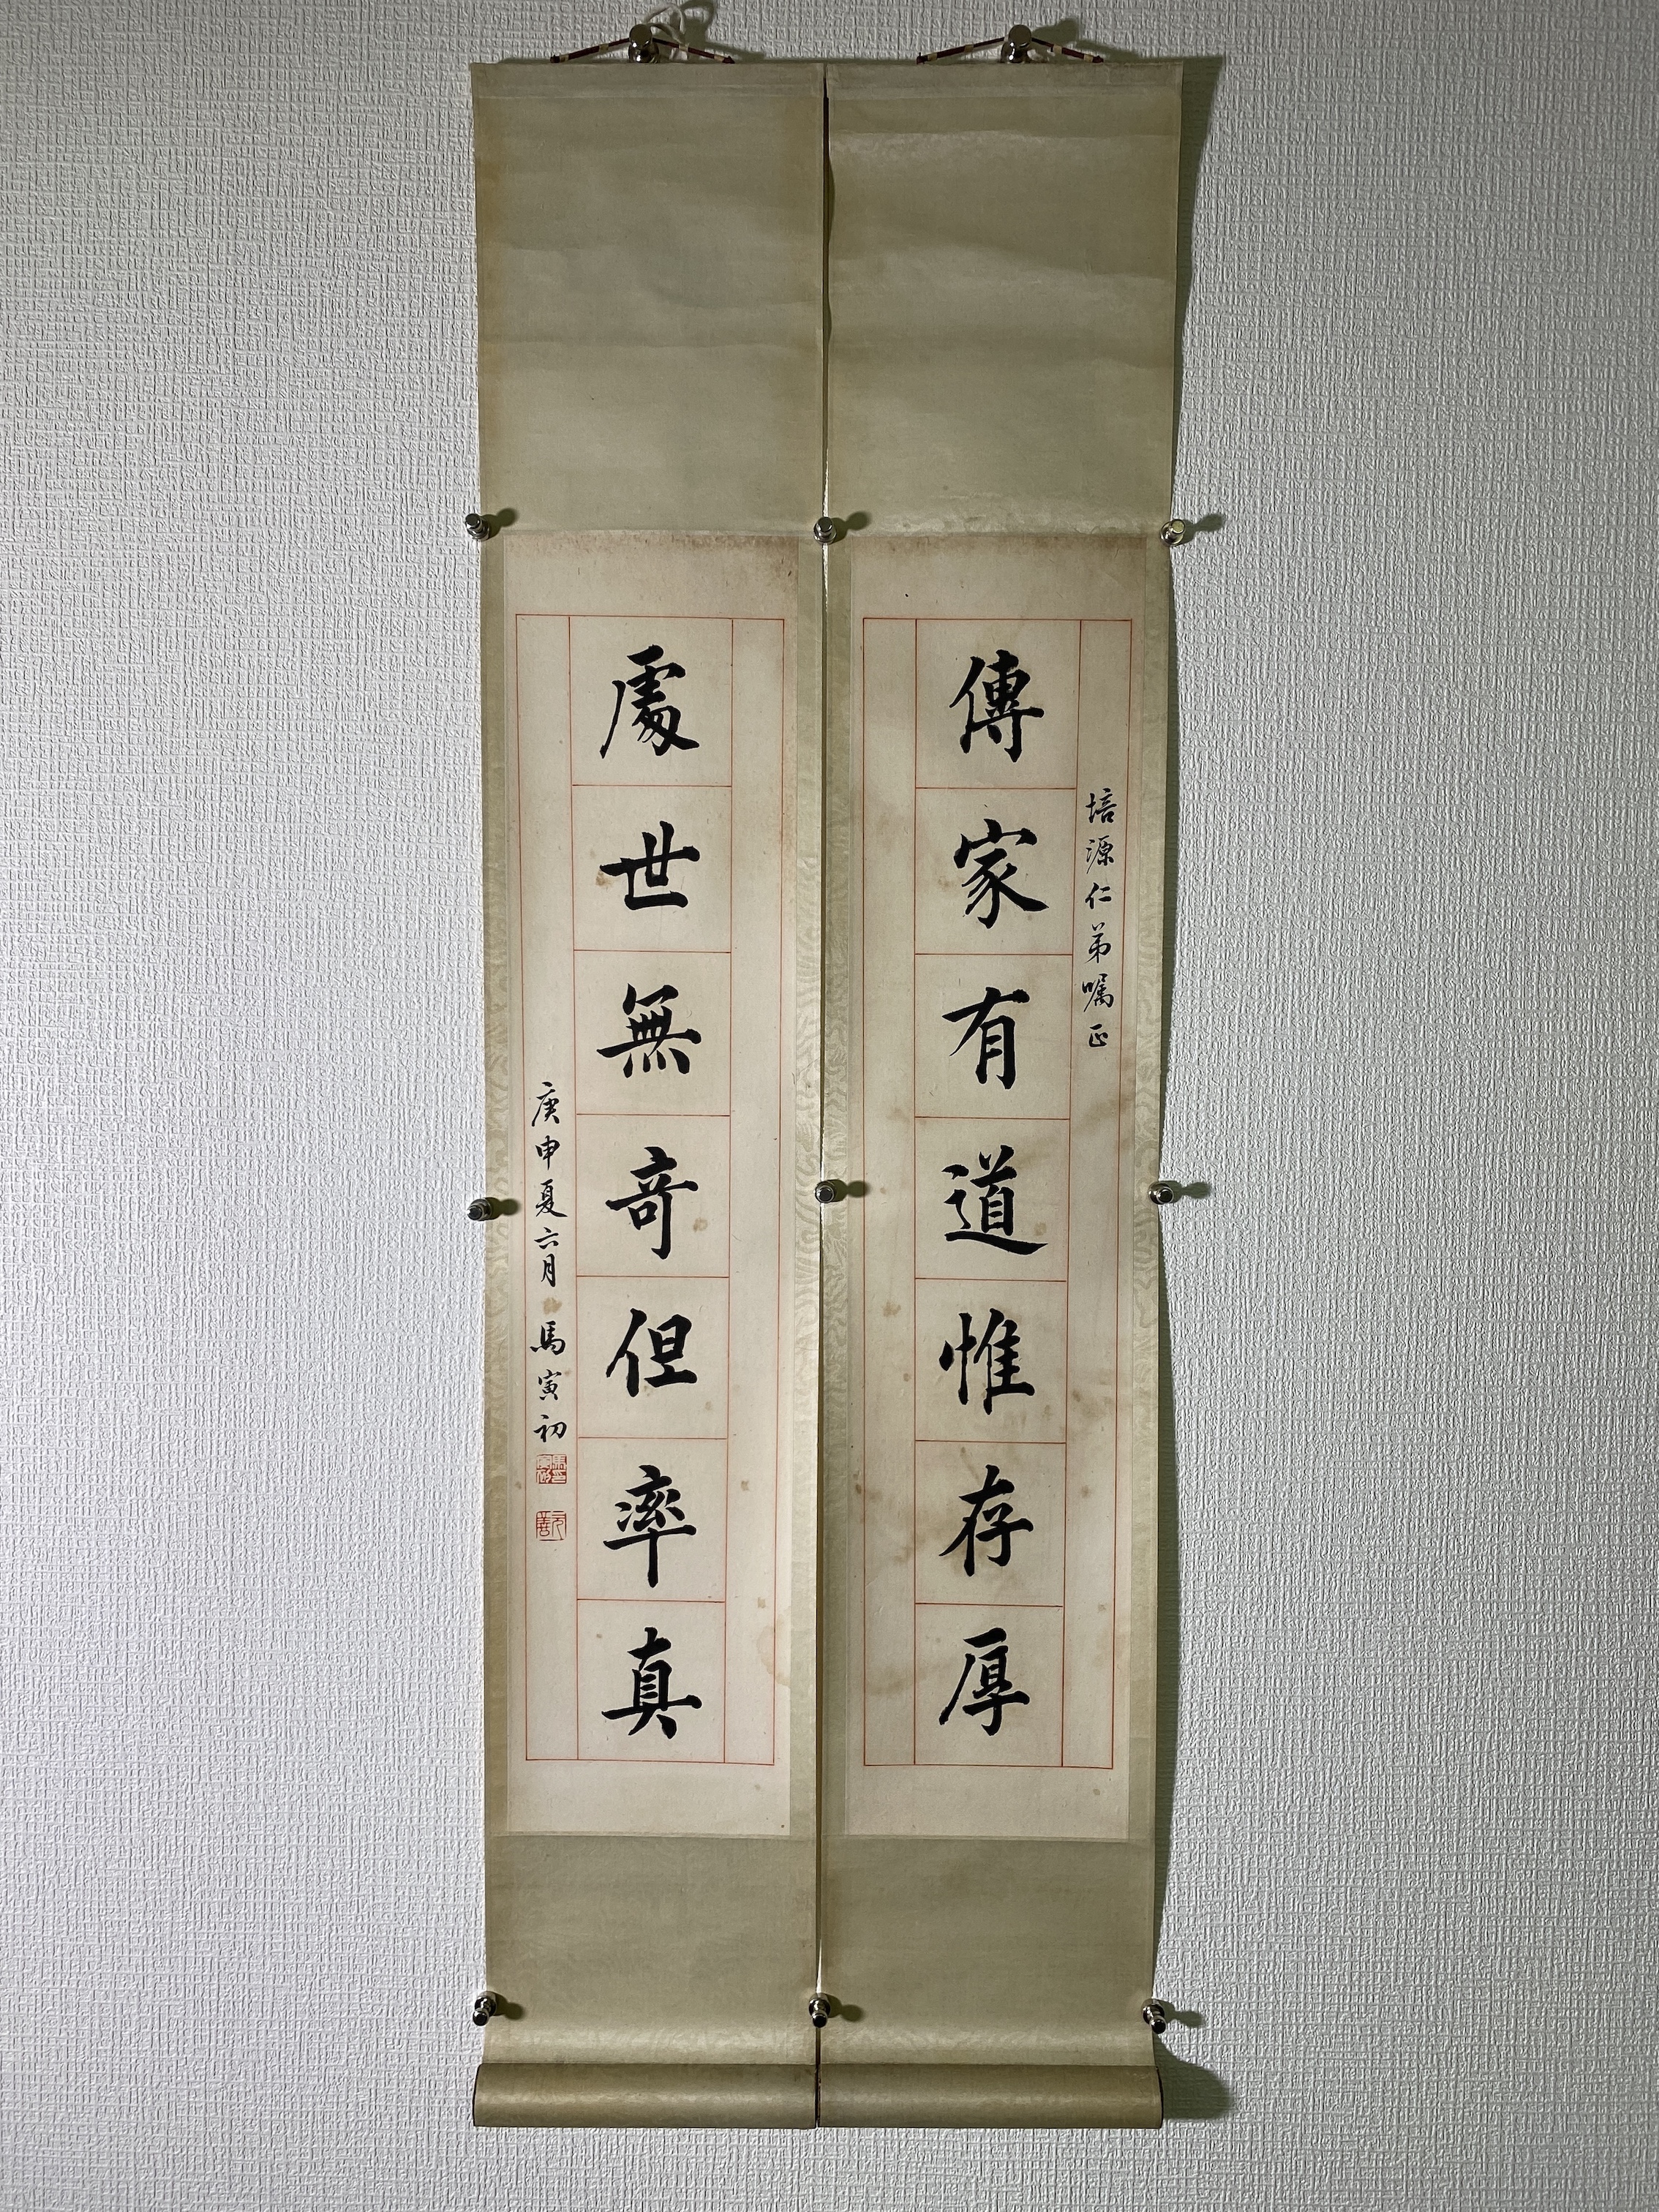 培源仁弟嘱正
傳家有道惟存厚
處世無奇但率真
庚申夏六月 馬寅初